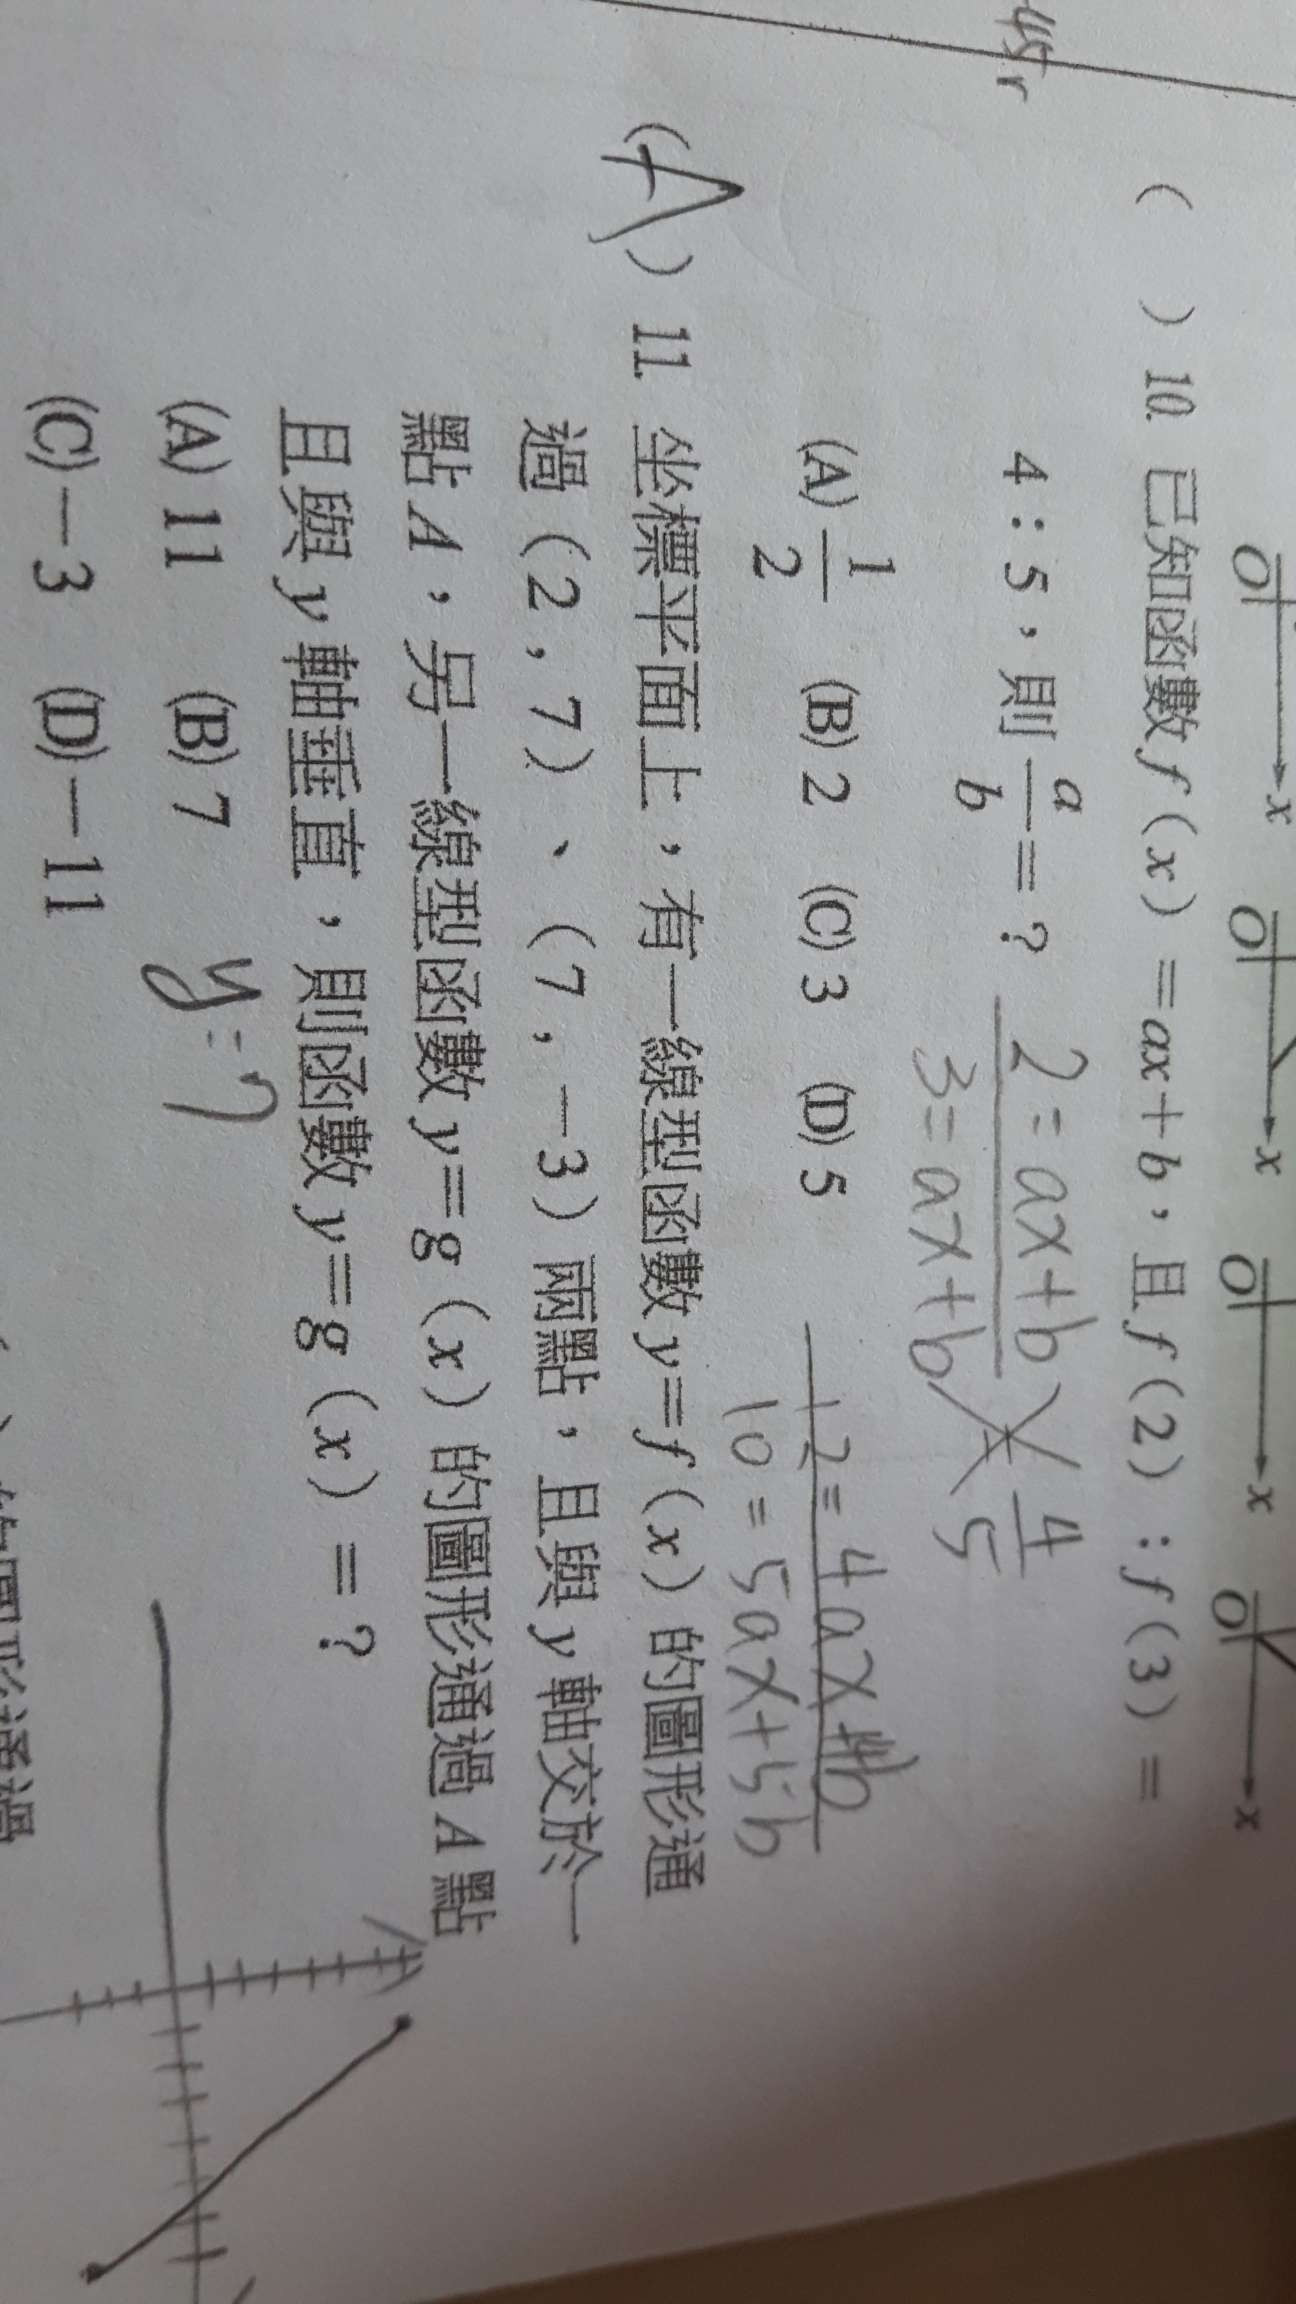 O x O x O x O x
( ) 10. 已知函數 f(x)=ax+b，且 f(2):f(3)=
4:5，則 a/b =？
2=ax+b
3=ax+b
4
5
(A) 1/2 (B) 2 (C) 3 (D) 5
12=4ax+4b
10=5ax+5b
(A) 11. 坐標平面上，有一線型函數 y=f(x) 的圖形通
過（2,7）、（7,－3）兩點，且與 y 軸交於一
點 A，另一線型函數 y=g(x) 的圖形通過 A 點
且與 y 軸垂直，則函數 y=g(x)=？
(A) 11 (B) 7
y=7
(C)－3 (D)－11
的圖形通過